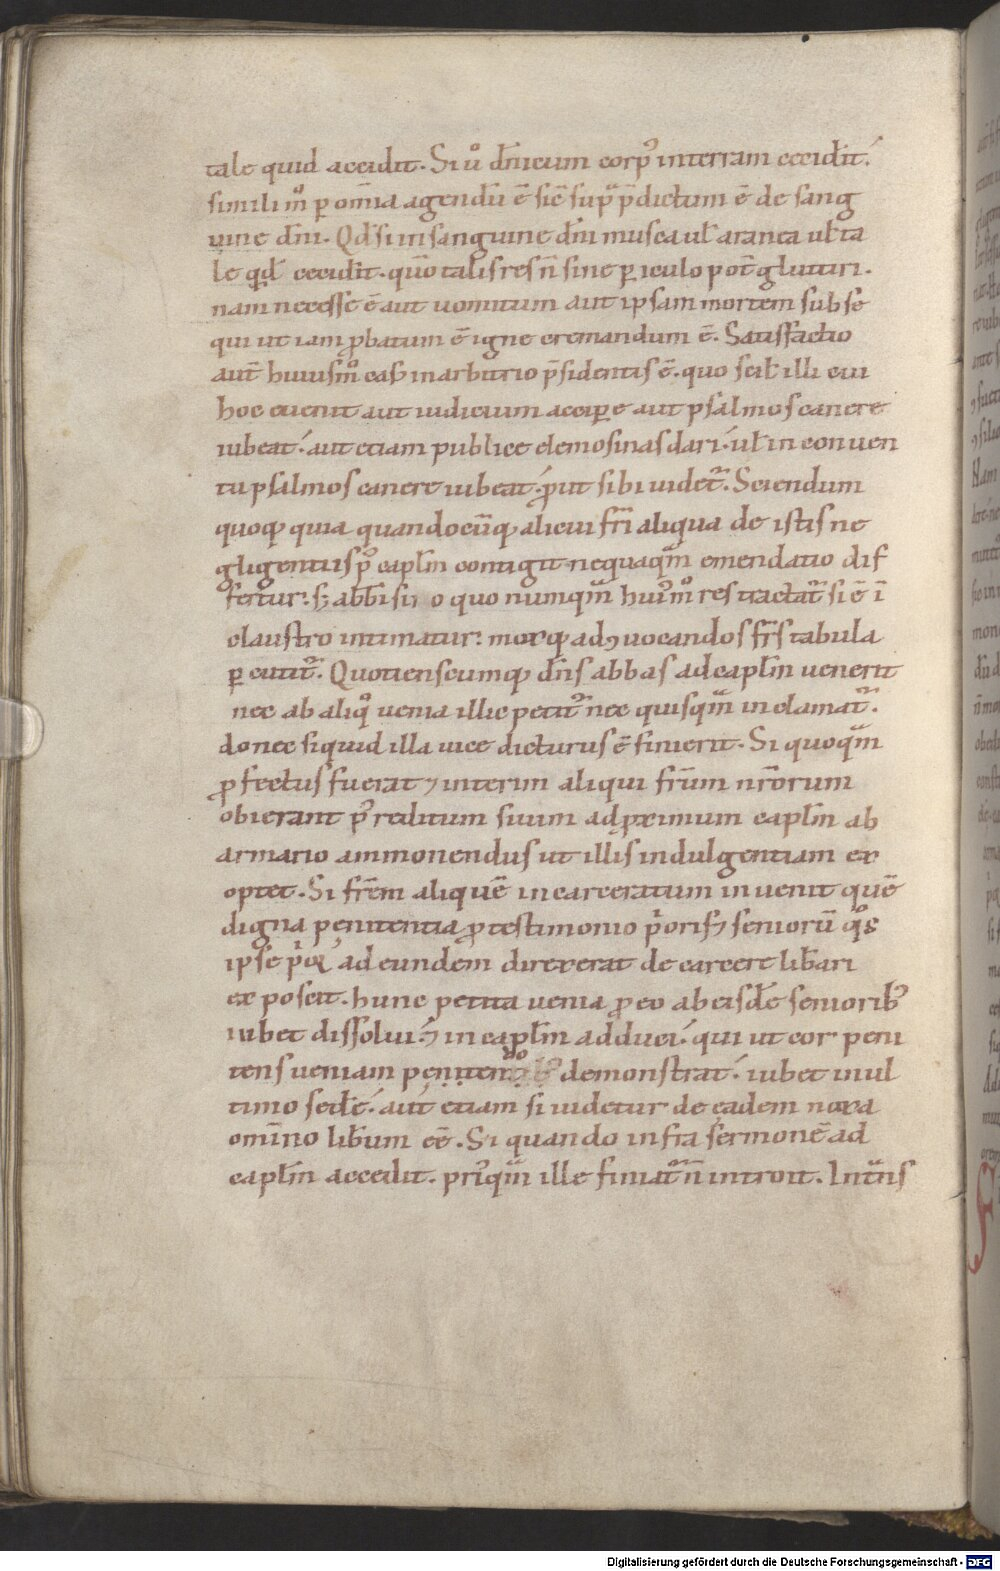 tale quid accidit. Si ů dn̄icum corp᷒ interram cecidit.́
simili m̊ ꝑ om̄ia agendū ē sic̄ sup̄ p̄dictum ē de sang
uine dn̄i. Qd̄ si in sanguine dn̄i musca ul̄ aranea ul̄ ta
le qd̄ cecidit. quō talis res n̄ sine ꝑiculo pot̄ gluttiri.
nam necesse ē aut uomitum aut ipsam mortem subse
qui ut iam ꝓbatum ē igne cremandum ē. Satisfactio
aut̄ huiusm̊ cas᷒ in arbitrio p̄sidentis ē. quo scil̄ illi cui
hoc euenit aut iudicium acciꝑe aut psalmos canere
iubeat.́ aut etiam publice elemosinas dari.́ ul̄ in conuen
tu psalmos canere iubeat.́ ꝓut sibi uidet᷑. Sciendum
quoqꝫ quia quandocūqꝫ alicui fr̄i aliqua de istis ne
gligentiis p᷒ capl̄m contigit nequaqᷓm emendatio dif
fertur.́ sꝫ abb̄i si o quo numqᷓm hui᷒m̊ res tractat᷑ si ē ī
claustro intimatur.́ moxqꝫ ad ꝯuocandos fr̄s tabula
ꝑcutit᷑. Quotienscumqꝫ dn̄s abbas ad capl̄m uenerit
nec ab aliq̊ uenia illic petit᷑ nec quisqᷓm inclamat᷑.
donec siquid illa uice dicturus ē finierit. Si quoqᷓm
ꝓfectus fuerat ⁊ interim aliqui fr̄um nr̄orum
obierant p᷒ reditum suum ad ꝓximum capl̄m ab
armario ammonendus ut illis indulgentiam ex
optet. Si fr̄em aliquē incarceratum inuenit quē
digna penitentia ꝓ testimonio p̓oris ⁊ senioꝝ q̊s
ipse p̓or ad eundem direxerat de carcere lib̄ari
exposcit. hunc petita uenia ꝓ eo ab eisdē seniorib᷒
iubet dissolui.́ ⁊ in capl̄m adduci.́ qui ut cor peni
tens ueniam demonstrat.́ iubet in ul
timo sedē.́ aut etiam si uidetur de eadem noxa
omīno lib̄um eē. Si quando infra sermonē ad
capl̄m accedit. pri᷒qᷓm ille finiat᷑ n̄ introit. Int̄ns
Digitalisierung gefördert durch die Deutsche Forschungsgemeinschaft - DFG